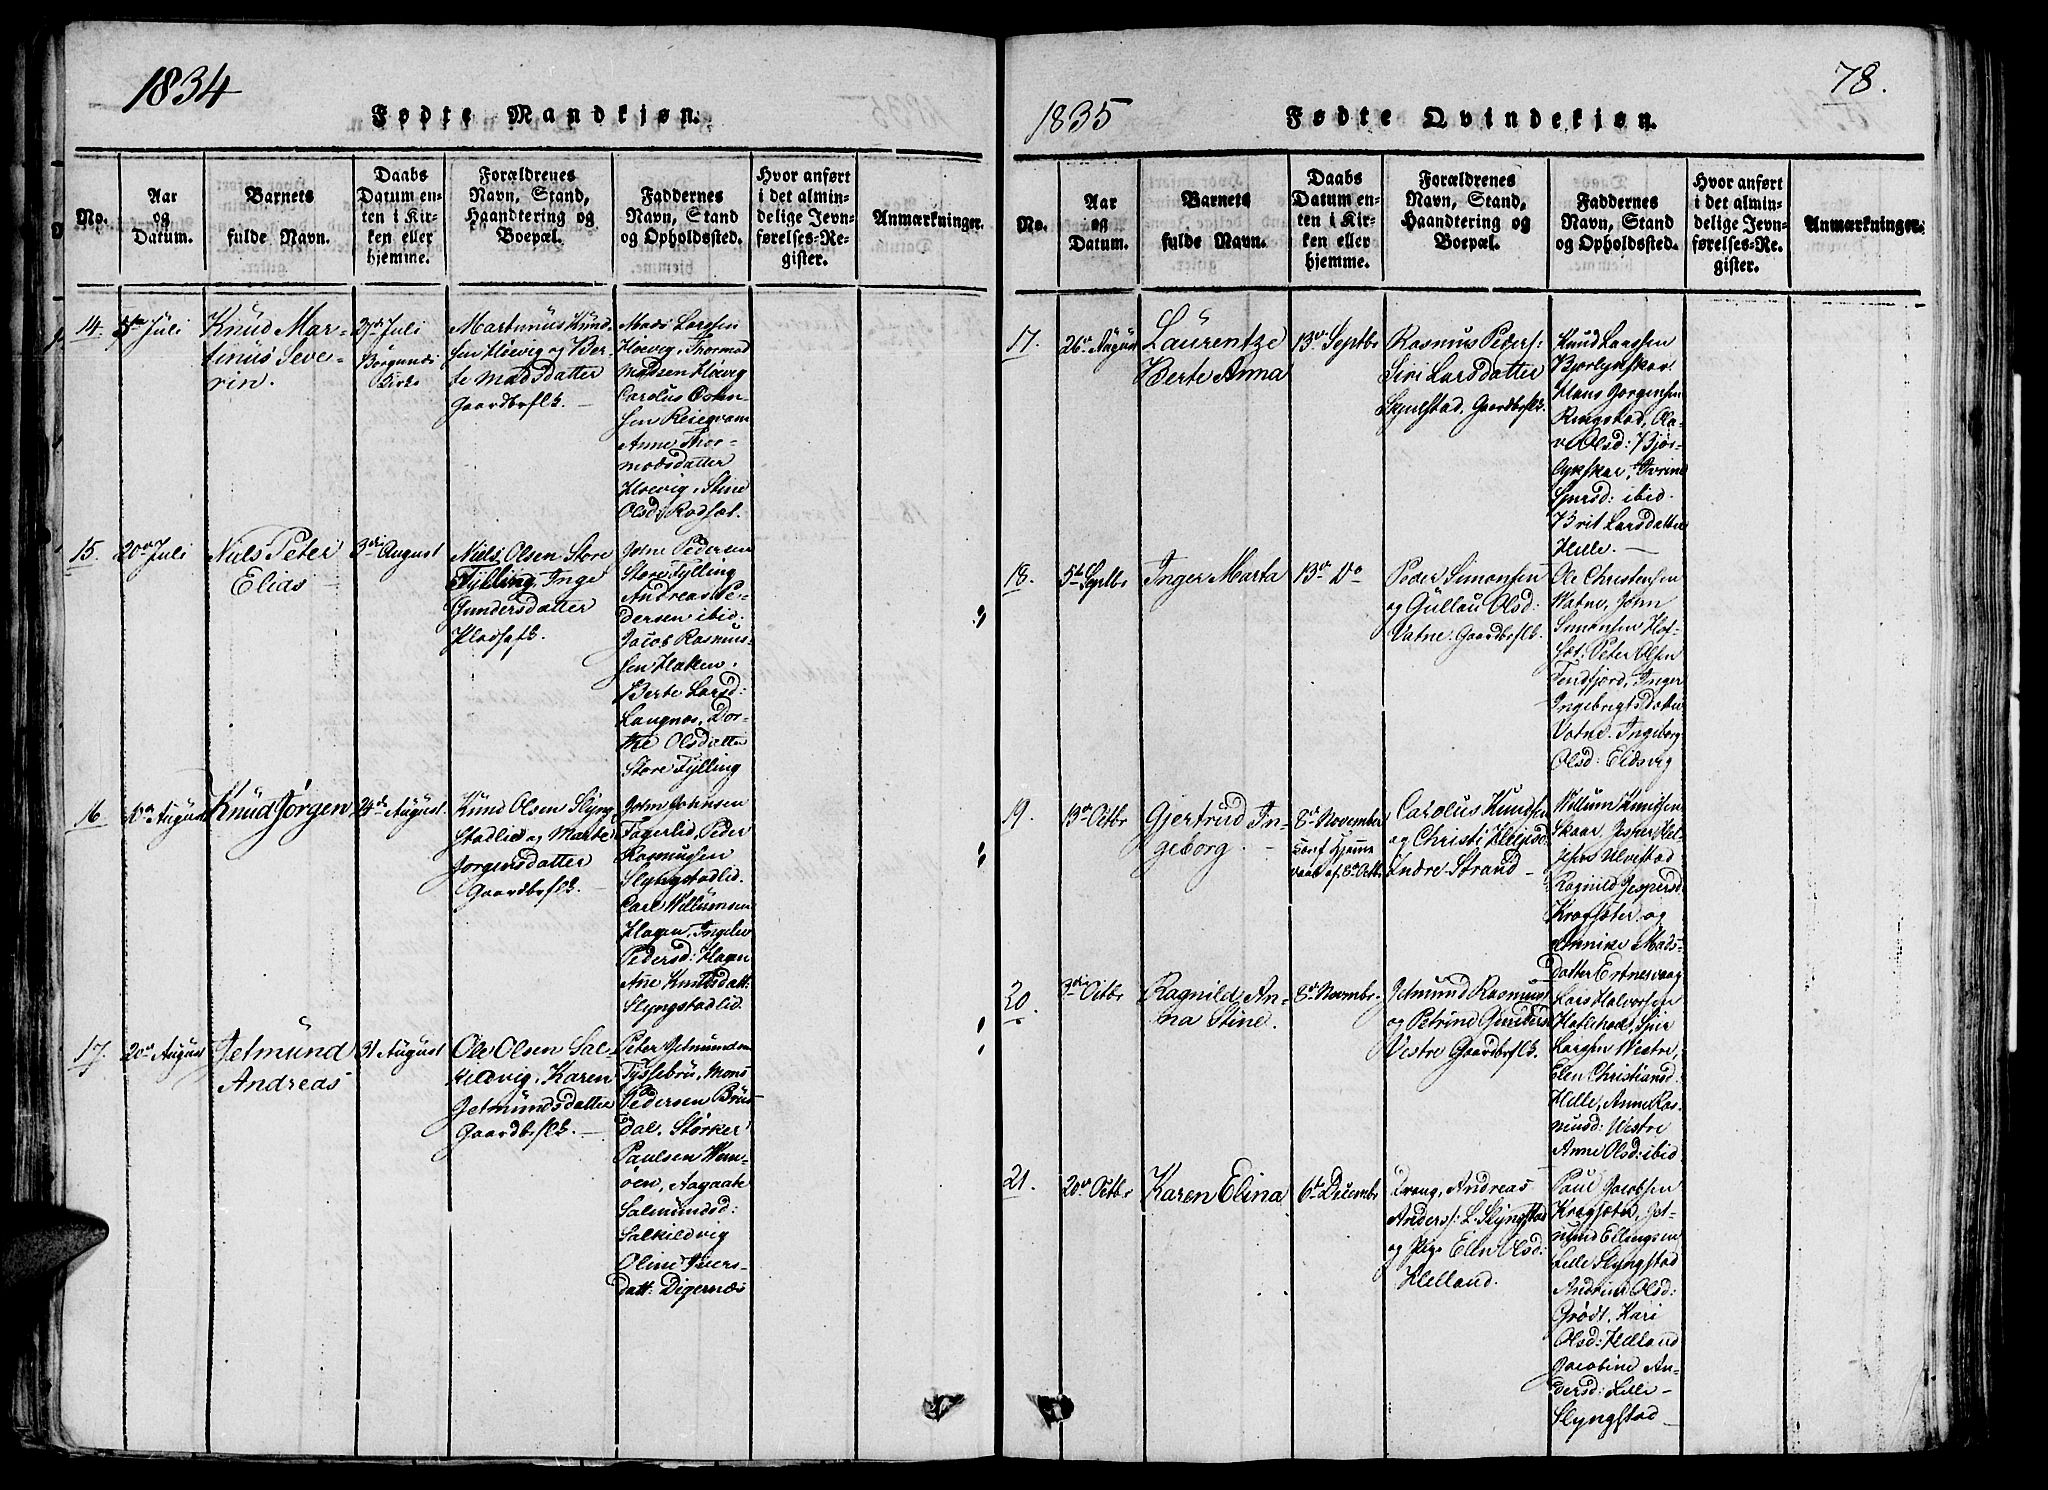 1834
Fødte Mandkjøn.
No.
Aar
og
Datum.
Barnets
fulde Navn.
Daabs
Datum en-
ten i Kir-
ken eller
hjemme.
Forældrenes
Navn, Stand,
Haandtering og
Boepæl.
Faddernes
Navn, Stand
og Opholdssted.
Hvor anført
i det almin-
delige Jevn-
førelses-Re-
gister.
Anmærkninger.
14.
5te Juli
Knud Mar-
tinus Seve-
rin.
27de Juli
Borgunds
Kirke
Martinus Knud-
sen Hoevig og Ber-
te Madsdatter
Gaardbrflk.
Mads Larssen
Hoevig, Thormod
Madsen Hoevig
Carolus Osten-
sen
Anne Thor-
modsdatter
Hoevig, Stine
Olsd: Rodset.
15.
20de Juli
Niels Peter
Elias
3die August
Niels Olsen Store
Tylling, Inge
Gundersdatter
Huusfolk.
John Pedersen
Store Tylling
Andreas Pe-
dersen ibid:
Jacob Rasmus-
sen Haken.
Berte Larsd:
Langnes, Dor-
the Olsdatter
Store Tylling
16
10de August
Knud Jørgen
24de August
Knud Olsen Slyng
Stadlid og Marte
Jorgensdatter
Gaardbrflk.
John Johnsen
Fagerlid, Peder
Rasmussen
Slyngstadlid.
Carl Willumsen
Hagen, Ingeb:
Pedersd: Hagen
Ane Knudsdatt:
Slyngstadlid
17.
20de August
Jetmund
Andreas
31 August
Ole Olsen Sal-
Karen
Jetmundsdatter
Gaardbrflk.
Peter Jetmundsen
Tyssebrö, Mons
Pedersen Brus-
dal. Størker
Paulsen Wem-
öen, Aagaate
Salmundsd:
Salkildvig
Oline Ivers-
datt: Digernæs
78.
1835
Fødte Qvindekjøn.
No.
Aar
og
Datum.
Barnets
fulde Navn.
Daabs
Datum en-
ten i Kir-
ken eller
hjemme.
Forældrenes
Navn, Stand,
Haandtering og
Boepæl.
Faddernes
Navn, Stand
og Opholdssted.
Hvor anført
i det almin-
delige Jevn-
førelses-Re-
gister.
Anmærkninger.
17.
26de August
Laurentze
Berte Anna
13de Septbr
Rasmus Peders:
Siri Larsdatter
Skjelstad, Gaardbrflk.
Knud Larssen
Bjorlykskar
Hans Jorgensen
Ringstad, Ola-
ve Olsd: Bjor-
lykskar, Ivrine
ibid.
Brit Larsdatter
Hille.
18.
5te Septbr
Inger Marta
13de Do
Peder Simonsen
og Gullau Olsd:
Vatne. Gaardbrflk.
Ole Christensen
Watne, John
Simonsen Hof-
set. Peter Olsen
Tenfjord, Inger
Ingebrigtsdatter
Vatne. Ingeborg
Olsd: Eidsvig
19.
13de Octbr
Gjertrud In-
geborg.
8de November
conf Hjemme
daab af 18 Octb.
Carolus Knudsen
og Christi
Indre Strand
Willum Knudsen
Skaar, Jesper
Ulvestad
Ragnild Jespersd
Krogseter og
Annike Mads-
datter Ertnesvaag
20.
3die Octbr
Ragnild An-
na Stine.
8de Novembr.
Jetmund Rasmuss
og Petrine
Vestre Gaardbrflk.
Lars Halvorsen
Sjur
Larsen Westre,
Elen Christiansd:
Hille, Anne Ras-
musd: Westre
Anne Olsd: ibid
21.
20de Octbr
Karen Elina
6te Decembr
Dreng, Andreas
Anders: L. Slyngstad
og Pige Elen Olsd:
Helland.
Paul Jacobsen
Krogseter, Jet-
mund Ellingsen
Lille Slyngstad
Andrine Olsd:
Grødt, Kari
Olsd: Helland
Jacobine An-
dersd: Lille
Slyngstad